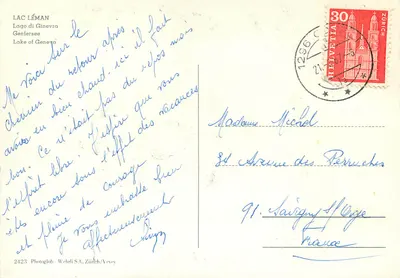 LAC LÉMAN
Lago di Ginevra
Genfersee
Lake of Geneva
Me voici sur le
chemin du retour après
avoir eu bien chaud: ici il fait
bon. Ce n'était pas du repos mais
l'esprit libre. J'espère que vous
êtes encore sous l'effet des vacances
et pleine de courage
Je vous embrasse bien
affectueusement
2423 Photoglob-Wehrli S.A. Zürich/Vevey
30
HELVETIA
ZÜRICH
Madame Michel
34 Avenue des Perruches
91. Savigny S/Orge
France